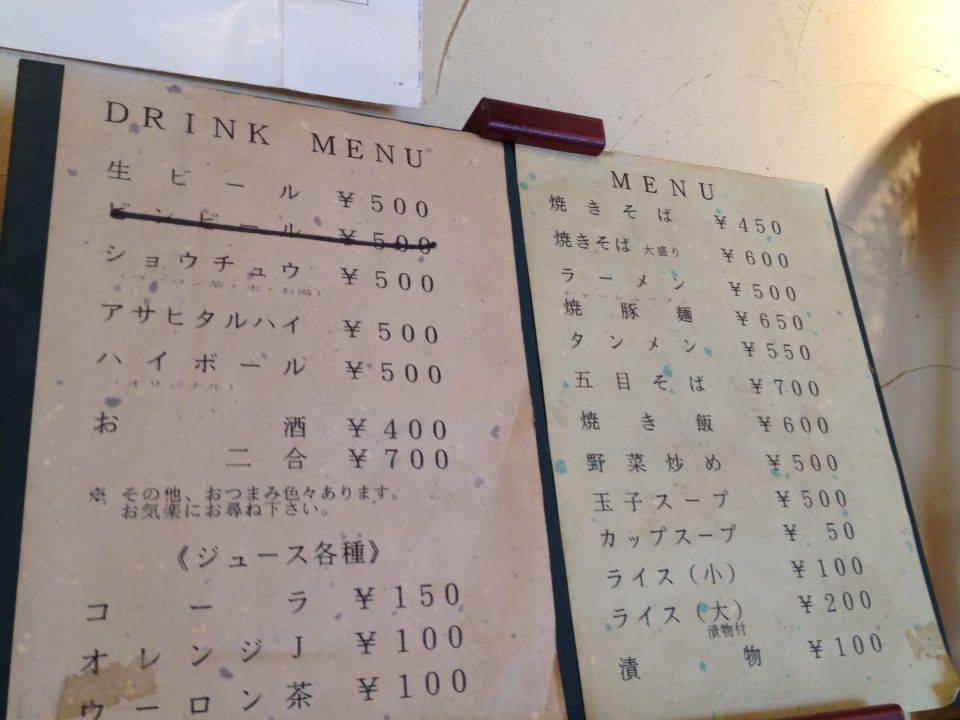 DRINK MENU
生ビール ¥500
ビンビール ¥500
ショウチュウ ¥500
(ウーロン茶・水・お湯)
アサヒタルハイ ¥500
ハイボール ¥500
(オリジナル)
お酒 ¥400
二合 ¥700
※ その他、おつまみ色々あります。
お気楽にお尋ね下さい。
《ジュース各種》
コーラ ¥150
オレンジJ ¥100
ウーロン茶 ¥100
MENU
焼きそば ¥450
焼きそば 大盛り ¥600
ラーメン ¥500
焼豚麺 ¥650
タンメン ¥550
五目そば ¥700
焼き飯 ¥600
野菜炒め ¥500
玉子スープ ¥500
カップスープ ¥50
ライス(小) ¥100
ライス(大) ¥200
漬物付
漬物 ¥100